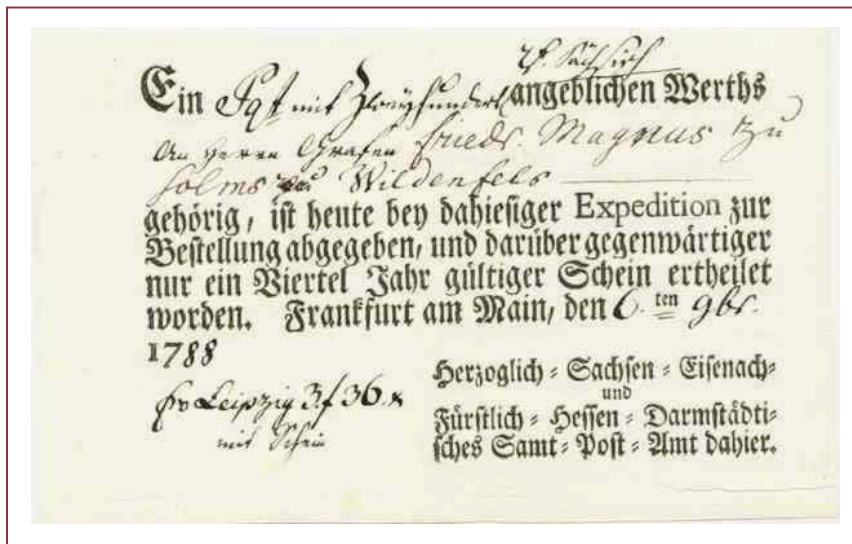 Sächsisch
Ein Pqt mit Zweyhundert angeblichen Werths
An Herrn Grafen Friedr. Magnus zu
Solms zu Wildenfels
gehörig, ist heute bey dahiesiger Expedition zur
Bestellung abgegeben, und darüber gegenwärtiger
nur ein Viertel Jahr gültiger Schein ertheilet
worden. Frankfurt am Main, den 6. ten 9br.
1788
fro Leipzig 3 f 36. x
mit Schein
Herzoglich-Sachsen-Eisenach-
und
Fürstlich-Hessen-Darmstädti-
sches Samt-Post-Amt dahier.